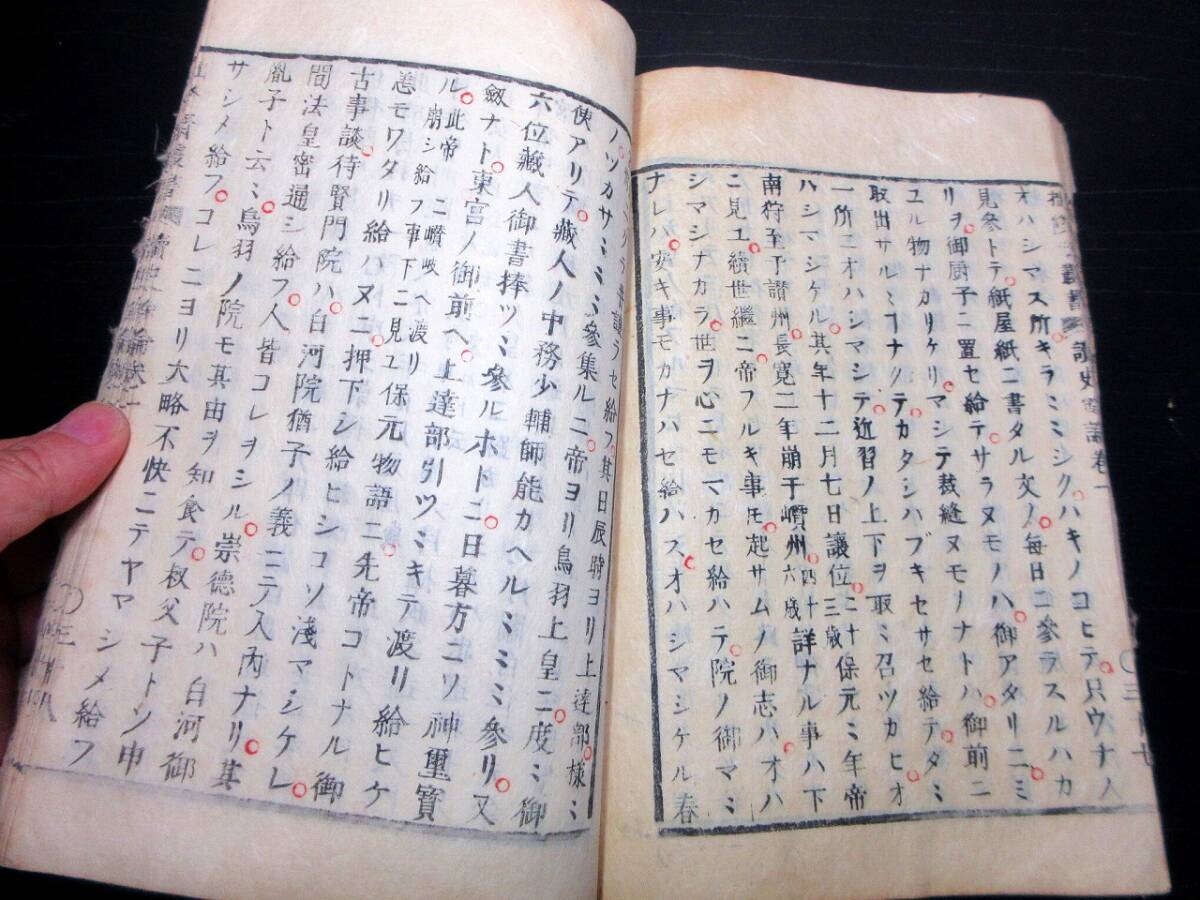 オハシマス所キラミミシクハキノコヒテ只ウナ人
見參トテ紙屋紙ニ書タル文ノ每日ニ參ラスルハカ
リヲ御厨子ニ置セ給テサラヌモノハ御アタリニミ
ユル物ナカリケリマシテ裁縫ヌモノナトハ御前ニ
取出サルミコナクテカタシハブキセサセ給テタミ
一所ニオハシマシテ近習ノ上下ヲ取ミ召ツカヒオ
ハシマシケル其年十二月七日讓位二十三歳保元ミ年帝
南狩至予讃州長寛二年崩于讃州四十六歳詳ナル事ハ下
ニ見ユ續世繼ニ帝フルキ事圧起サムノ御志ハオハ
シマシナカラ世ヲ心ニモマカセ給ハテ院ノ御マミ
ナレハ安キ事モカナハセ給ハスオハシマシケル春
ノツカサミミ參集ルニ帝ヨリ鳥羽上皇ニ度ミ御
使アリテ藏人ノ中務少輔師能カヘルミミ參リ又
六位藏人御書捧ツミ參ルホトニ日暮方ニソ神璽寳
劔ナト東宮ノ御前ヘ上達部引ツミキテ渡リ給ヒケ
ル此帝崩シ給フ事下ニ見ユ保元物語ニ先帝コトナル御
恙モワタリ給ハヌニ押下シ給ヒシコソ淺マシケレ
古事談待賢門院ハ白河院猶子ノ義ニテ入內ナリ其
間法皇密通シ給フ人皆コレヲシル崇德院ハ白河御
胤子ト云ミ鳥羽ノ院モ其宙ヲ知食テ叔父子トソ申
サシメ給フコレニヨリ大略不快ニテヤマシメ給フ